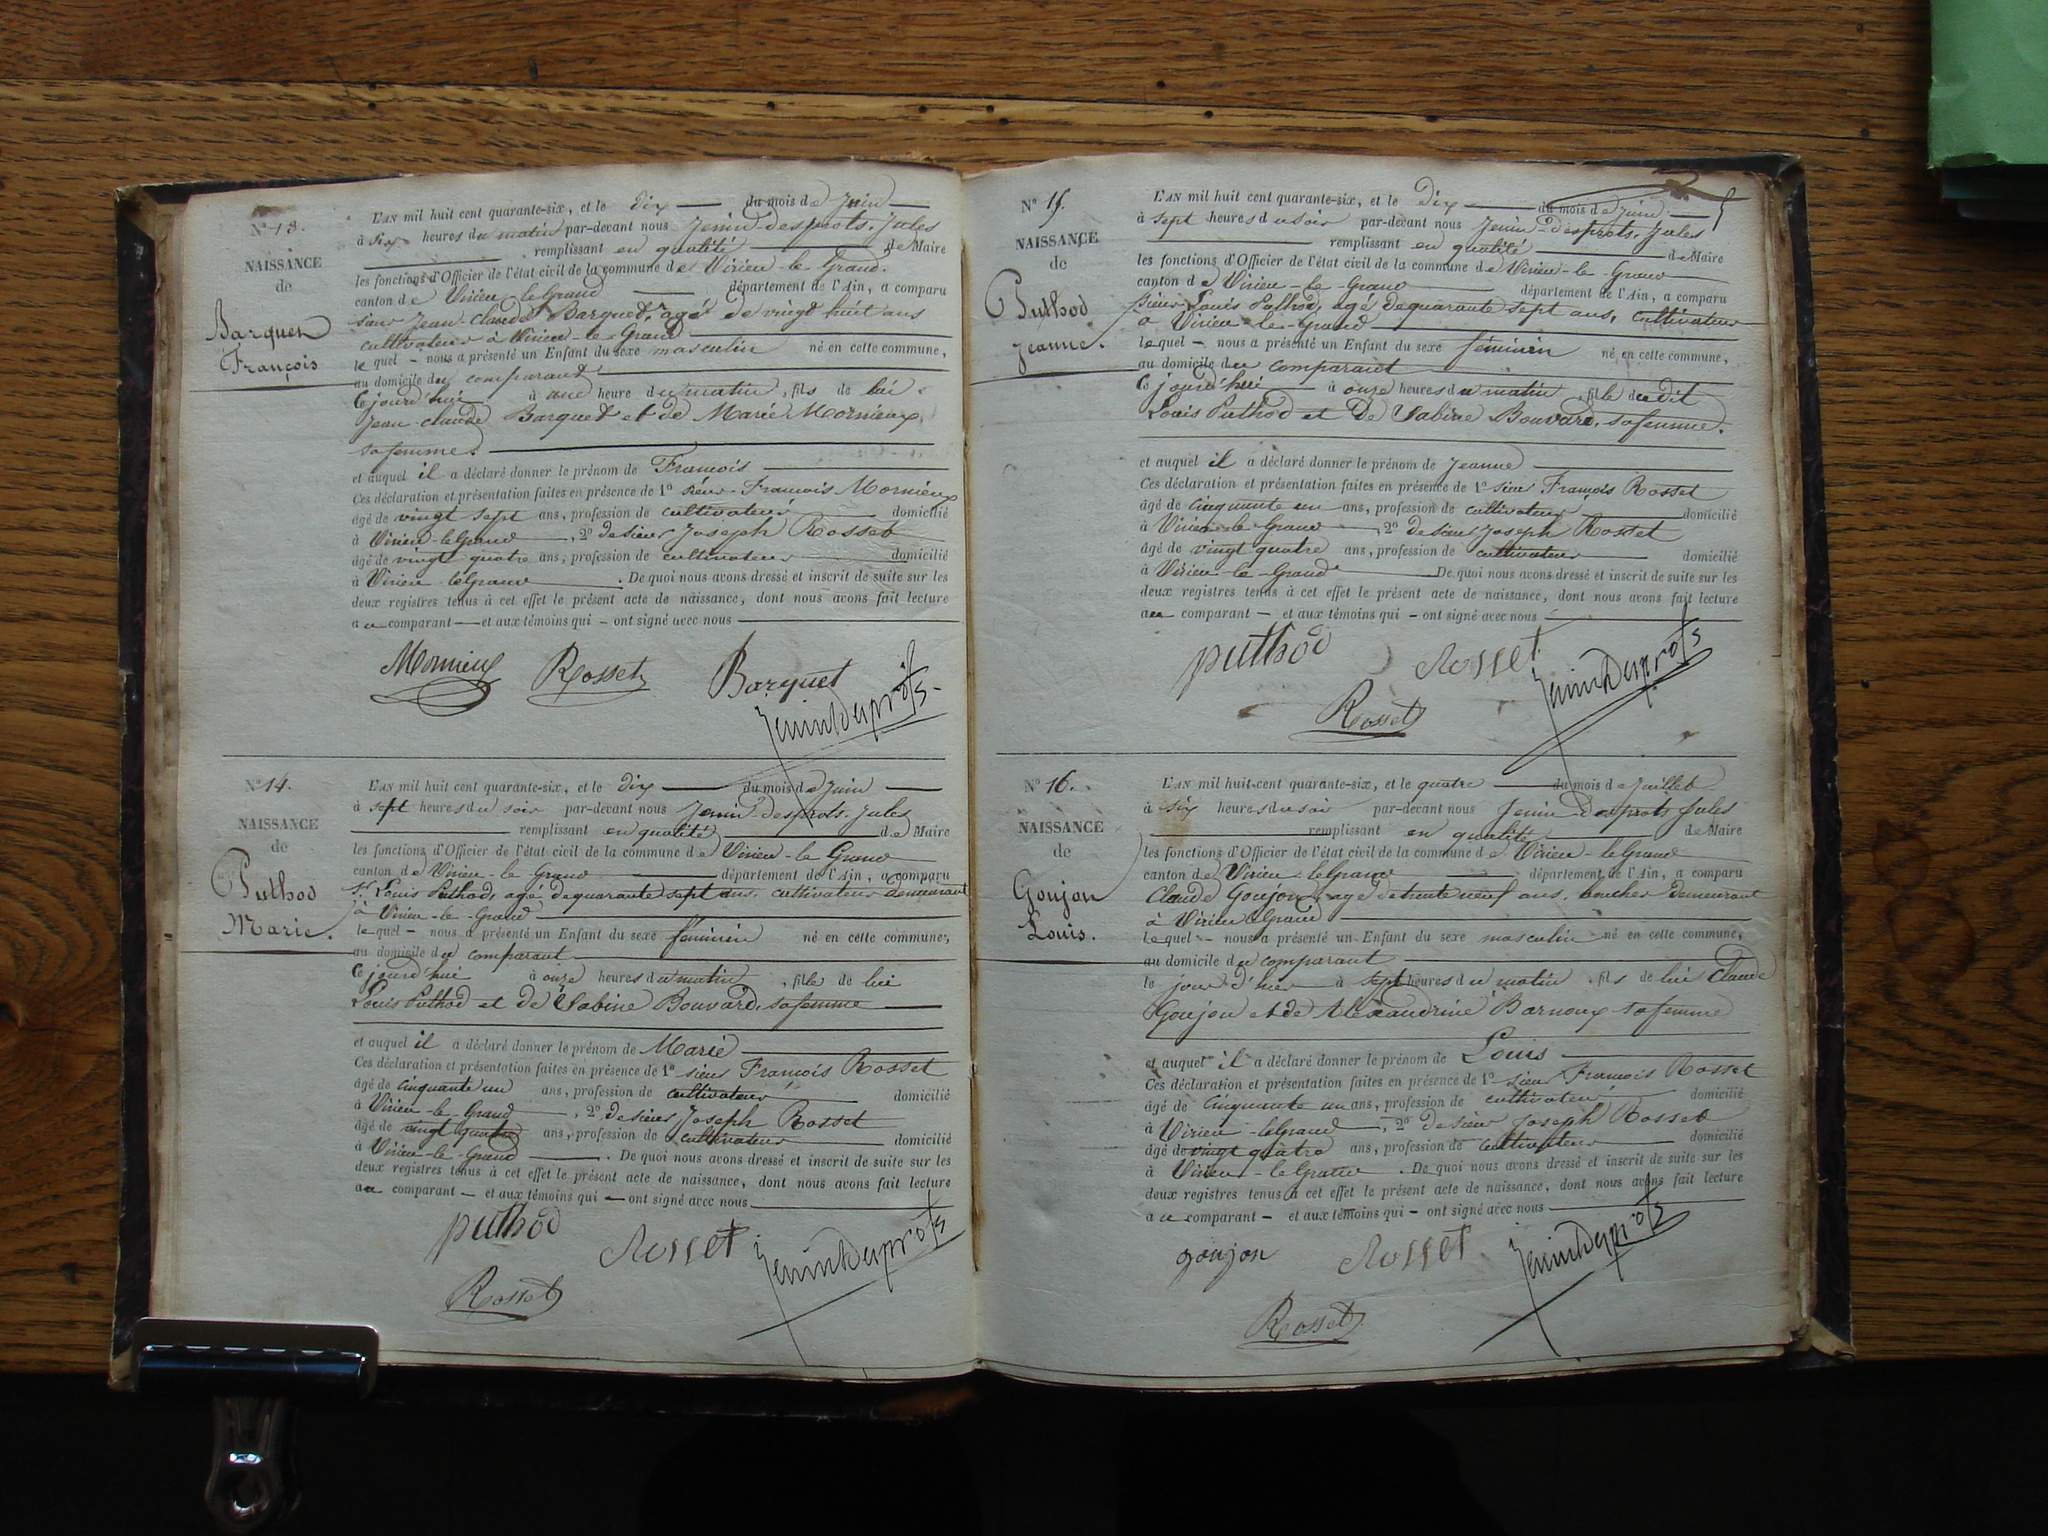 N° 13.
NAISSANCE
de
Barquet
François
L'AN mil huit cent quarante-six, et le dix du mois de Juin
à six heures du matin par-devant nous Jenin-desprots, Jules
remplissant en qualité de Maire
les fonctions d'Officier de l'état civil de la commune de Virieu-le-Grand.
canton de Virieu-le-Grand département de l'Ain, a comparu
Jean-Claude Barquet, agé de vingt huit ans
cultivateur à Virieu-le-Grand
lequel – nous a présenté un Enfant du sexe masculin né en cette commune,
au domicile du comparant
Ce jourd'hui à une heure du matin, fils de lui
Jean-Claude Barquet et de Marie Mornieux,
sa femme.
et auquel il a déclaré donner le prénom de François
Ces déclaration et présentation faites en présence de 1° sieur François Mornieux
âgé de vingt sept ans, profession de cultivateur domicilié
à Virieu-le-Grand, 2° de sieur Joseph Rosset
âgé de vingt quatre ans, profession de cultivateur domicilié
à Virieu-le-Grand. De quoi nous avons dressé et inscrit de suite sur les
deux registres tenus à cet effet le présent acte de naissance, dont nous avons fait lecture
au comparant — et aux témoins qui – ont signé avec nous
Mornieux Rosset Barquet
Jenin Desprots
N° 14.
NAISSANCE
de
Puthod
Marie.
L'AN mil huit cent quarante-six, et le dix du mois de Juin
à sept heures du soir par-devant nous Jenin-desprots, Jules
remplissant en qualité de Maire
les fonctions d'Officier de l'état civil de la commune de Virieu-le-Grand
canton de Virieu-le-Grand département de l'Ain, a comparu
Sr Louis Puthod, agé de quarante sept ans, cultivateur demeurant
à Virieu-le-Grand
lequel – nous a présenté un Enfant du sexe féminin né en cette commune,
au domicile du comparant
Ce jourd'hui à onze heures du matin, fille de lui
Louis Puthod et de Sabine Bouvard, sa femme
et auquel il a déclaré donner le prénom de Marie
Ces déclaration et présentation faites en présence de 1° sieur François Rosset
âgé de cinquante un ans, profession de cultivateur domicilié
à Virieu-le-Grand, 2° de sieur Joseph Rosset
âgé de vingt quatre ans, profession de cultivateur domicilié
à Virieu-le-Grand. De quoi nous avons dressé et inscrit de suite sur les
deux registres tenus à cet effet le présent acte de naissance, dont nous avons fait lecture
au comparant – et aux témoins qui – ont signé avec nous
puthod Rosset Jenin Desprots
Rosset
N° 15.
NAISSANCE
de
Puthod
Jeanne.
L'AN mil huit cent quarante-six, et le dix du mois de Juin
à sept heures du soir par-devant nous Jenin-desprots, Jules
remplissant en qualité de Maire
les fonctions d'Officier de l'état civil de la commune de Virieu-le-Grand
canton de Virieu-le-Grand département de l'Ain, a comparu
sieur Louis Puthod, agé de quarante sept ans, cultivateur
à Virieu-le-Grand
lequel – nous a présenté un Enfant du sexe féminin né en cette commune,
au domicile du comparant
Ce jourd'hui à onze heures du matin, fille dudit
Louis Puthod et De Sabine Bouvard, sa femme.
et auquel il a déclaré donner le prénom de Jeanne
Ces déclaration et présentation faites en présence de 1° sieur François Rosset
âgé de cinquante un ans, profession de cultivateur domicilié
à Virieu-le-Grand, 2° de sieur Joseph Rosset
âgé de vingt quatre ans, profession de cultivateur domicilié
à Virieu-le-Grand De quoi nous avons dressé et inscrit de suite sur les
deux registres tenus à cet effet le présent acte de naissance, dont nous avons fait lecture
au comparant — et aux témoins qui – ont signé avec nous
puthod Rosset Jenin Desprots
Rosset
N° 16.
NAISSANCE
de
Goujon
Louis.
L'AN mil huit cent quarante-six, et le quatre du mois de Juillet
à six heures du soir par-devant nous Jenin-desprots Jules
remplissant en qualité de Maire
les fonctions d'Officier de l'état civil de la commune de Virieu-le-Grand
canton de Virieu-le-Grand département de l'Ain, a comparu
Claude Goujon, agé de trente neuf ans, boucher demeurant
à Virieu-le-Grand
lequel – nous a présenté un Enfant du sexe masculin né en cette commune,
au domicile du comparant
le jour d'hier à sept heures du matin, fils de lui Claude
Goujon et de Alexandrine Barnoux sa femme
et auquel il a déclaré donner le prénom de Louis
Ces déclaration et présentation faites en présence de 1° sieur François Rosset
âgé de cinquante un ans, profession de cultivateur domicilié
à Virieu-le-Grand, 2° de sieur Joseph Rosset
âgé de vingt quatre ans, profession de cultivateur domicilié
à Virieu-le-Grand. De quoi nous avons dressé et inscrit de suite sur les
deux registres tenus à cet effet le présent acte de naissance, dont nous avons fait lecture
au comparant – et aux témoins qui – ont signé avec nous
goujon Rosset Jenin Desprots
Rosset